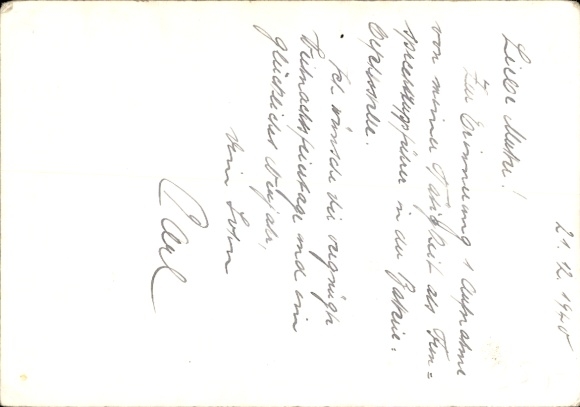 21.12.1940
Liebe Mutter!
Zur Erinnerung 1 Aufnahme
von meiner Tätigkeit als Fern=
sprechtruppführer in der
Ich wünsche dir vergnügte
Weihnachtsfeiertage und ein
glückliches Neujahr,
Dein Sohn
Karl